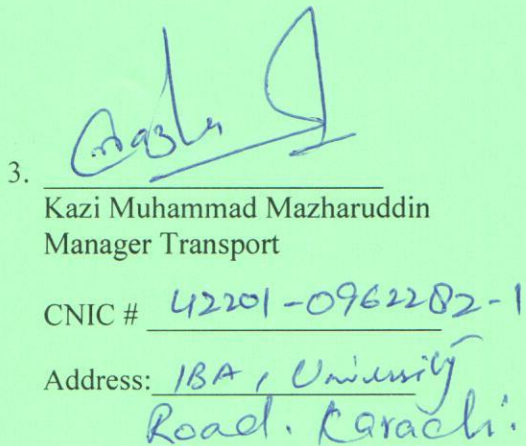 3.
Kazi Muhammad Mazharuddin
Manager Transport
CNIC # 42201-0962282-1
Address: IBA, University
Road. Karachi.